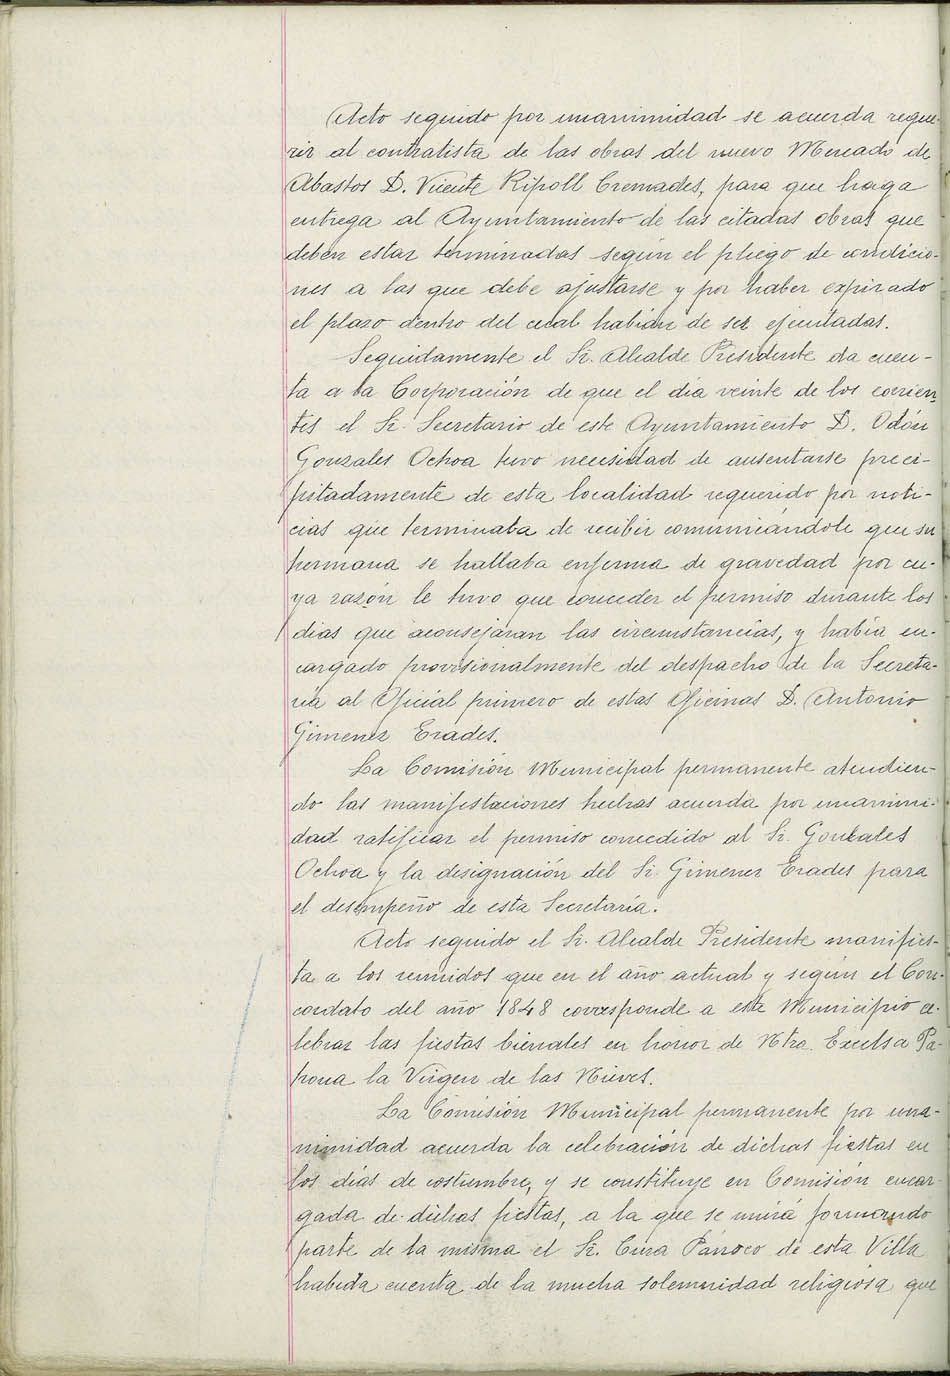 Acto seguido por unanimidad se acuerda reque-
rir al contratista de las obras del nuevo Mercado de
Abastos D. Vicente Ripoll Cremades, para que haga
entrega al Ayuntamiento de las citadas obras que
deben estar terminadas según el pliego de condicio-
nes a las que debe ajustarse y por haber expirado
el plazo dentro del cual habían de ser ejecutadas.
Seguidamente el Sr. Alcalde Presidente da cuen-
ta a la Corporación de que el día veinte de los corrien-
tes el Sr. Secretario de este Ayuntamiento D. Odón
Gonzales Ochoa tuvo necesidad de ausentarse preci-
pitadamente de esta localidad requerido por noti-
cias que terminaba de recibir comunicándole que su
hermana se hallaba enferma de gravedad por cu-
ya razón le tuvo que conceder el permiso durante los
dias que aconsejaran las circunstancias, y había en-
cargado provisionalmente del despacho de la Secreta-
ria al Oficial primero de estas Oficinas D. Antonio
Gimenez Erades.
La Comisión Municipal permanente atendien-
do las manifestaciones hechas acuerda por unanimi-
dad ratificar el permiso concedido al Sr. Gonzales
Ochoa y la designación del Sr. Gimenez Erades para
el desempeño de esta Secretaría.
Acto seguido el Sr. Alcalde Presidente manifies-
ta a los reunidos que en el año actual y según el Con-
cordato del año 1848 corresponde a este Municipio ce-
lebrar las fiestas bienales en honor de Ntra. Excelsa Pa-
trona la Virgen de las Nieves.
La Comisión Municipal permanente por una-
nimidad acuerda la celebración de dichas fiestas en
los días de costumbre, y se constituye en Comisión encar-
gada de dichas fiestas, a la que se unirá formando
parte de la misma el Sr. Cura Párroco de esta Villa
habida cuenta de la mucha solemnidad religiosa que